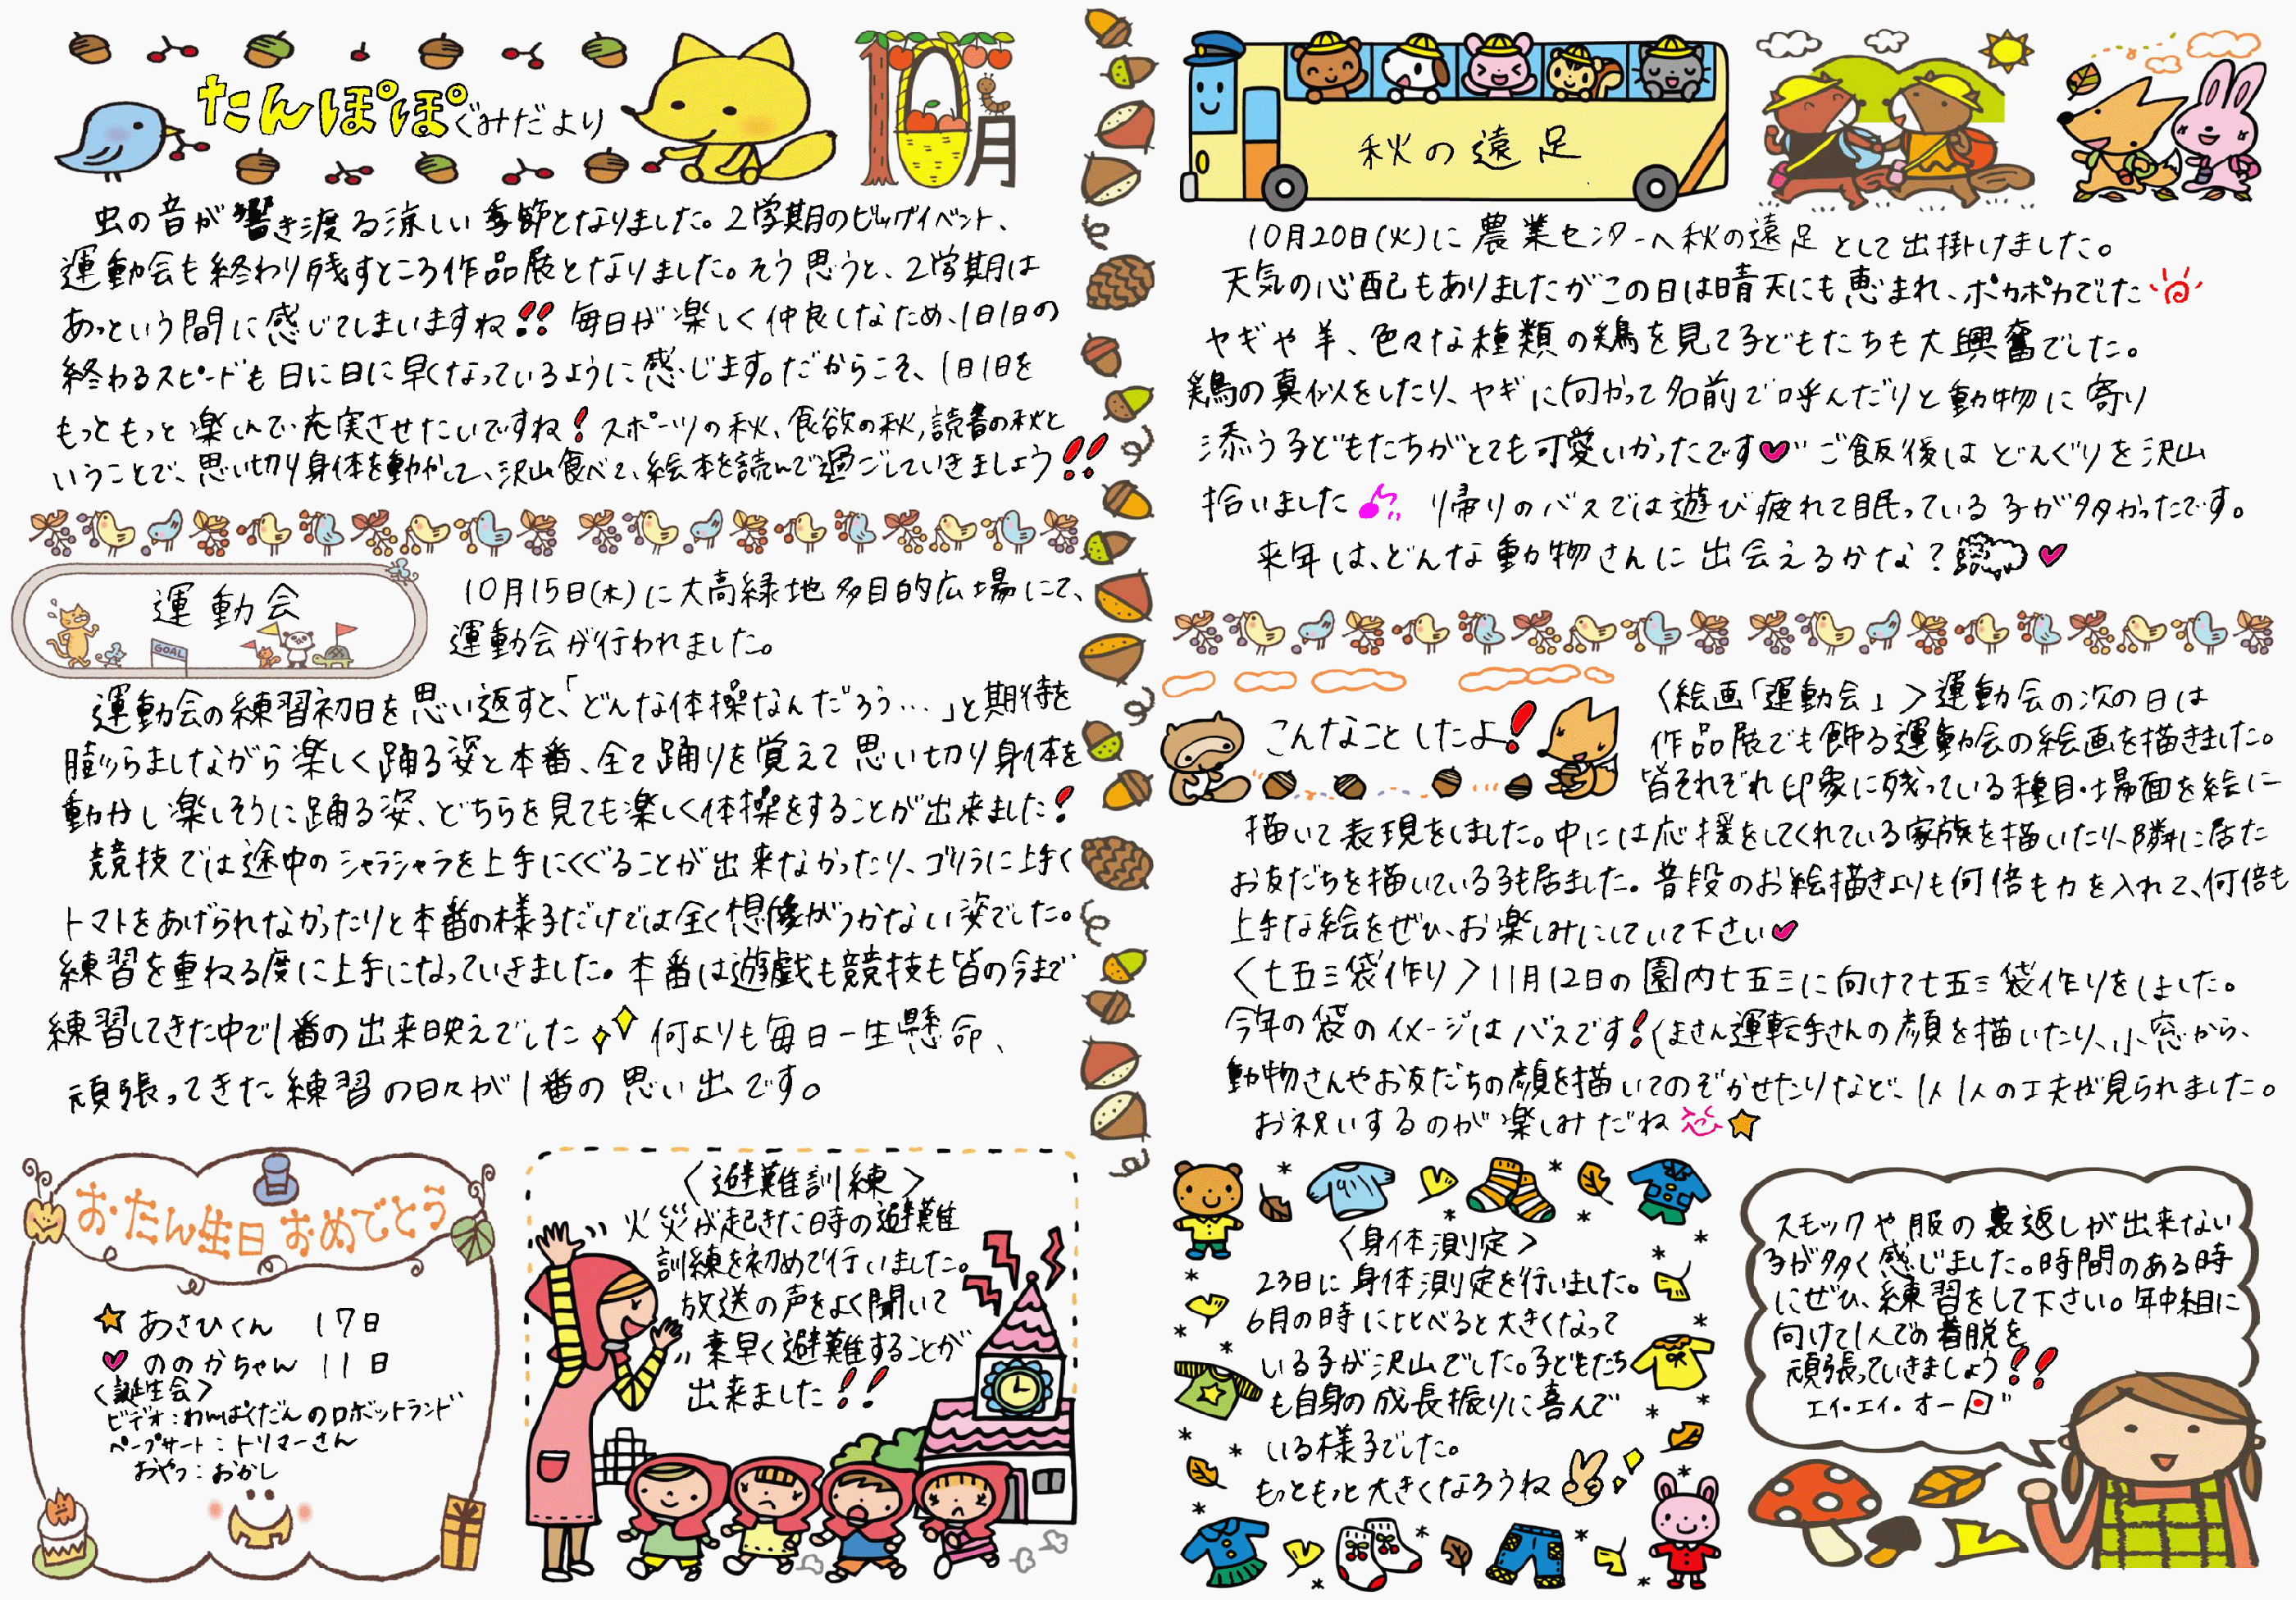 たんぽぽぐみだより
10月
虫の音が響き渡る涼しい季節となりました。2学期のビッグイベント、
運動会も終わり残すところ作品展となりました。そう思うと、2学期は
あっという間に感じてしまいますね!! 毎日が楽しく仲良しなため、1日1日の
終わるスピードも日に日に早くなっているように感じます。だからこそ、1日1日を
もっともっと楽しんで充実させたいですね! スポーツの秋、食欲の秋,読書の秋と
いうことで、思い切り身体を動かして、沢山食べて、絵本を読んで過ごしていきましょう!!
運動会
GOAL
10月15日(木)に大高緑地多目的広場にて、
運動会が行われました。
運動会の練習初日を思い返すと、「どんな体操なんだろう…」と期待を
膨らましながら楽しく踊る姿と本番、全て踊りを覚えて思い切り身体を
動かし楽しそうに踊る姿、どちらを見ても楽しく体操をすることが出来ました!
競技では途中のシャラシャラを上手にくぐることが出来なかったり、ゴリラに上手く
トマトをあげられなかったりと本番の様子だけでは全く想像がつかない姿でした。
練習を重ねる度に上手になっていきました。本番は遊戯も競技も皆の今まで
練習してきた中で1番の出来映えでした 何よりも毎日一生懸命、
頑張ってきた練習の日々が1番の思い出です。
おたん生日おめでとう
あさひくん 17日
ののかちゃん 11日
〈誕生会〉
ビデオ:わんぱくだんのロボットランド
ペープサート:トリマーさん
おやつ:おかし
〈避難訓練〉
火災が起きた時の避難
訓練を初めて行いました。
放送の声をよく聞いて
素早く避難することが
出来ました!!
秋の遠足
10月20日(火)に農業センターへ秋の遠足として出掛けました。
天気の心配もありましたがこの日は晴天にも恵まれ、ポカポカでした
ヤギや羊、色々な種類の鶏を見て子どもたちも大興奮でした。
鶏の真似をしたり、ヤギに向かって名前で呼んだりと動物に寄り
添う子どもたちがとても可愛いかったです♥ ご飯後はどんぐりを沢山
拾いました♪ 帰りのバスでは遊び疲れて眠っている子が多かったです。
来年は、どんな動物さんに出会えるかな?♥
こんなことしたよ!
〈絵画「運動会」〉運動会の次の日は
作品展でも飾る運動会の絵画を描きました。
皆それぞれ印象に残っている種目・場面を絵に
描いて表現をしました。中には応援をしてくれている家族を描いたり、隣に居た
お友だちを描いている子も居ました。普段のお絵描きよりも何倍も力を入れて、何倍も
上手な絵をぜひ、お楽しみにしていて下さい♥
〈七五三袋作り〉11月12日の園内七五三に向けて七五三袋作りをしました。
今年の袋のイメージはバスです!くまさん運転手さんの顔を描いたり、小窓から、
動物さんやお友だちの顔を描いてのぞかせたりなど、1人1人の工夫が見られました。
お祝いするのが楽しみだね
〈身体測定〉
23日に身体測定を行いました。
6月の時に比べると大きくなって
いる子が沢山でした。子どもたち
も自身の成長振りに喜んで
いる様子でした。
もっともっと大きくなろうね
スモックや服の裏返しが出来ない
子が多く感じました。時間のある時
にぜひ、練習をして下さい。年中組に
向けて1人での着脱を
頑張っていきましょう!!
エイ・エイ・オー